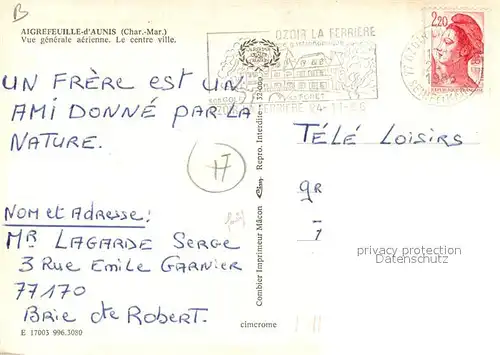 B
AIGREFEUILLE-d'AUNIS (Char.-Mar.)
Vue générale aérienne. Le centre ville.
OZOIR LA FERRIERE
2,20
UN FRÈRE EST UN
AMI DONNÉ PAR LA
NATURE.
17
NOM et Adresse:
Mr LAGARDE Serge
3 Rue Emile GARNIER
77170
Brie cte Robert.
E 17003 996.3080
cimcrome
Combier Imprimeur Mâcon Cim Repro. Interdite
TÉLÉ LOISIRS
privacy protection
Datenschutz